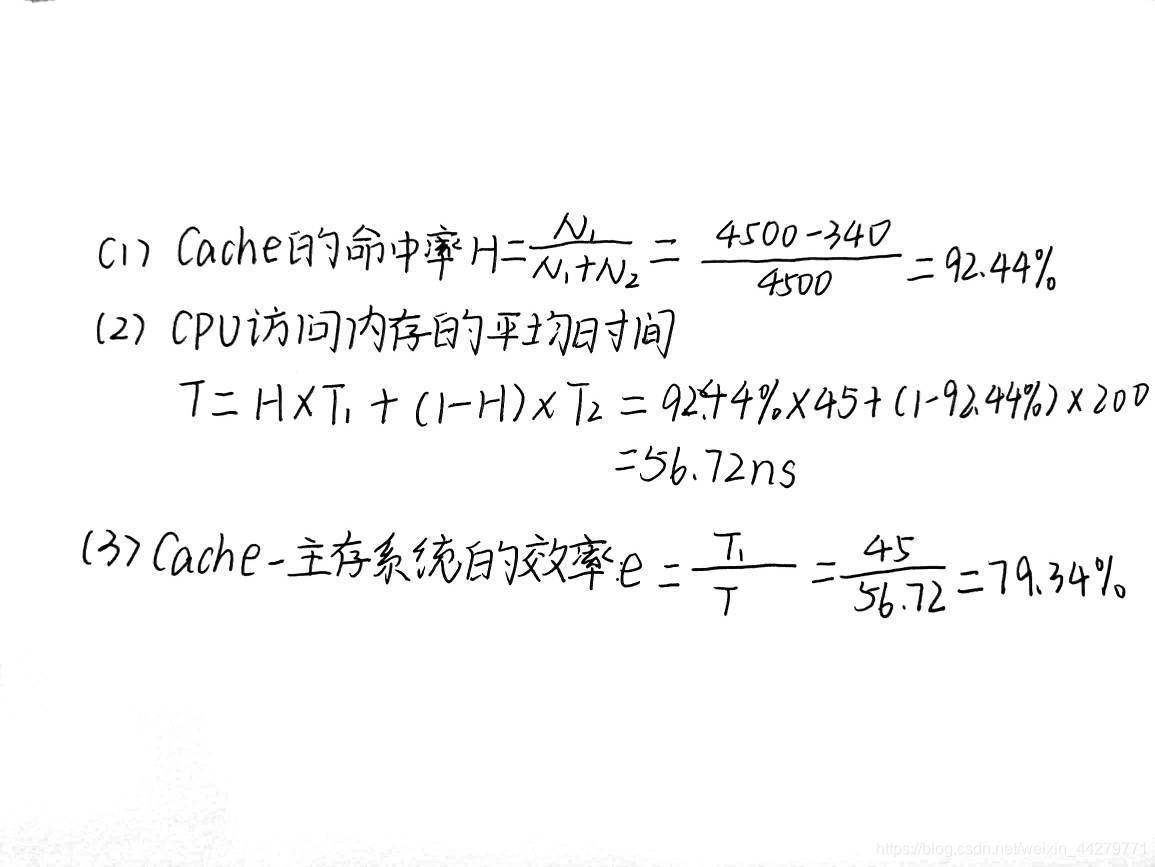 (1) Cache的命中率 H=N₁/(N₁+N₂) = (4500-340)/4500 = 92.44%
(2) CPU访问内存的平均时间
T=H×T₁+(1-H)×T₂ = 92.44%×45+(1-92.44%)×200
=56.72ns
(3) Cache-主存系统的效率e = T₁/T = 45/56.72 = 79.34%
https://blog.csdn.net/weixin_44279771